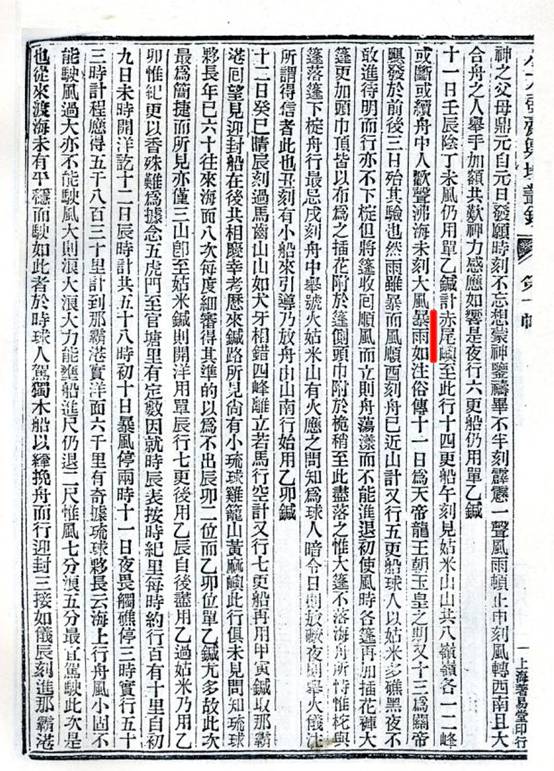 小方壺齋輿地叢鈔
第十帙
上海著易堂印行
神之父母鼎元自元日發願時刻不忘想蒙神鑒禱畢不半刻霹靂一聲風雨頓止申刻風轉西南且大
合舟之人舉手加額共歎神力感應如響是夜行六更船仍用單乙鍼
十一日壬辰陰丁未風仍用單乙鍼計赤尾嶼至此行十四更船午刻見姑米山山共八嶺嶺各一二峰
或斷或續舟中人歡聲沸海未刻大風暴雨如注俗傳十一日爲天帝龍王朝玉皇之期又十三爲關帝
颶發於前後三日殆其驗也然雨雖暴而風順酉刻舟已近山計又行五更船球人以姑米多礁黑夜不
敢進待明而行亦不下椗但將篷收回順風而立則舟蕩漾而不能進退初使風時各篷再加插花褲大
篷更加頭巾頂皆以布爲之插花附於篷側頭巾附於桅稍至此盡落之惟大篷不落海舟所恃惟柁與
篷落篷下椗舟行最忌戌刻舟中舉號火姑米山有火應之問知爲球人暗令日則放礮夜則舉火儀注
所謂得信者此也丑刻有小船來引導乃放舟由山南行始用乙卯鍼
十二日癸巳晴辰刻過馬齒山山如犬牙相錯四峰離立若馬行空計又行七更船再用甲寅鍼取那霸
港回望見迎封船在後共相慶幸老歷來鍼路所見尚有小琉球雞籠山黃麻嶼此行俱未見問知琉球
夥長年已六十往來海面八次每度細審得其準的以爲不出辰卯二位而乙卯位單乙鍼尤多故此次
最爲簡捷而所見亦僅三山卽至姑米鍼則開洋用單辰行七更後用乙辰自後盡用乙過姑米乃用乙
卯惟紀更以香殊難爲據念五虎門至官塘里有定數因就時辰表按時紀里每時約行百有十里自初
九日未時開洋訖十二日辰時計共五十八時初十日暴風停兩時十一日夜畏觸礁停三時實行五十
三時計程應得五千八百三十里計到那霸港實洋面六千里有奇據琉球夥長云海上行舟風小固不
能駛風過大亦不能駛風大則浪大浪大力能壅船進尺仍退二尺惟風七分浪五分最宜駕駛此次是
也從來渡海未有平穩而駛如此者於時球人駕獨木船以縴挽舟而行迎封三接如儀辰刻進那霸港